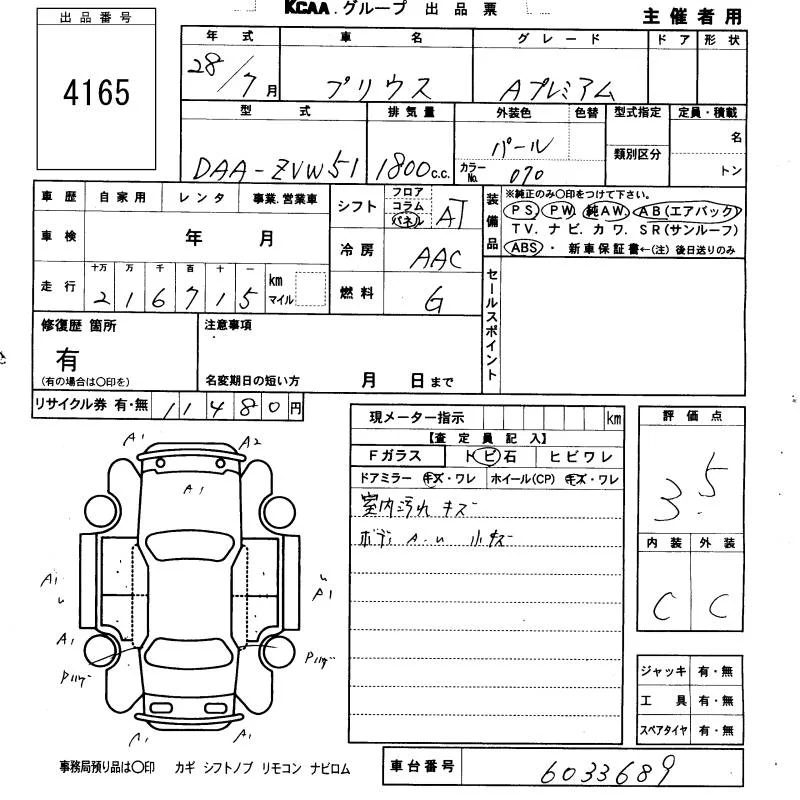 KCAA.グループ 出品票
主催者用
出品番号
4165
年式 車名 グレード ドア 形状
28/7月 プリウス Aプレミアム
型式 排気量 外装色 色替 型式指定 定員・積載
DAA-ZVW51 1800c.c. パール 名
類別区分
カラーNo. 070 トン
車歴 自家用 レンタ 事業.営業車
車検 年 月
走行 十万 万 千 百 十 一
216715 km マイル
シフト フロア コラム パネル AT
冷房 AAC
燃料 G
装備品
※純正のみ〇印をつけて下さい。
PS. PW. 純AW. AB(エアバック)
TV. ナビ. カワ. SR(サンルーフ)
ABS ・ 新車保証書←(注)後日送りのみ
セールスポイント
修復歴 箇所
有
(有の場合は〇印を)
注意事項
名変期日の短い方 月 日まで
リサイクル券 有・無 11480円
現メーター指示 km
【査定員記入】
Fガラス トビ石 ヒビワレ
ドアミラー キズ・ワレ ホイール(CP) キズ・ワレ
室内汚れ キズ
ボディ A-u 小キズ
評価点
3.5
内装 外装
C C
ジャッキ 有・無
工具 有・無
スペアタイヤ 有・無
A1 A2
A1
A1 A1
A1
A1 A1
事務局預り品は〇印 カギ シフトノブ リモコン ナビロム
車台番号 6033689